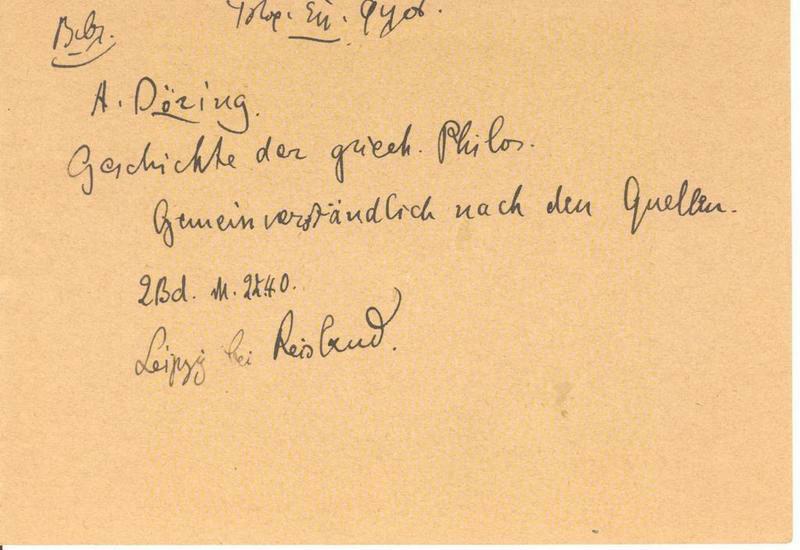 Bibr.
A. Döring.
Geschichte der griech. Philos.
Gemeinverständlich nach den Quellen.
2Bd. M.
Leipzig bei Reisland.